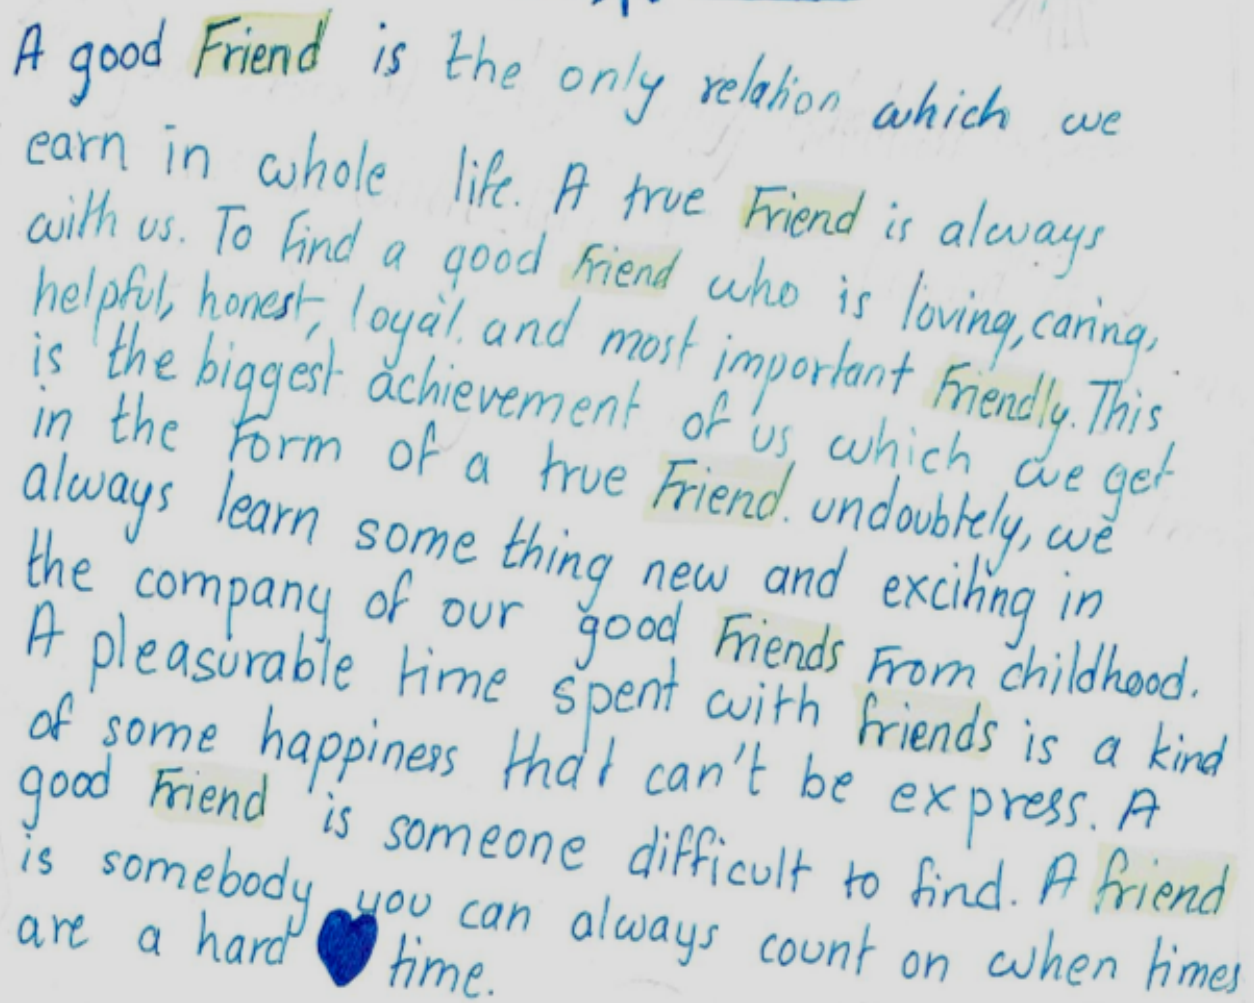 A good Friend is the only relation which we
earn in whole life. A true Friend is always
with us. To find a good Friend who is loving, caring,
helpful, honest, loyal. and most important Friendly. This
is the biggest achievement of us which we get
in the Form of a true Friend. undoubtely, we
always learn some thing new and exciting in
the company of our good Friends From childhood.
A pleasurable time spent with friends is a kind
of some happiness that can't be express. A
good Friend is someone difficult to find. A friend
is somebody you can always count on when times
are a hard time.